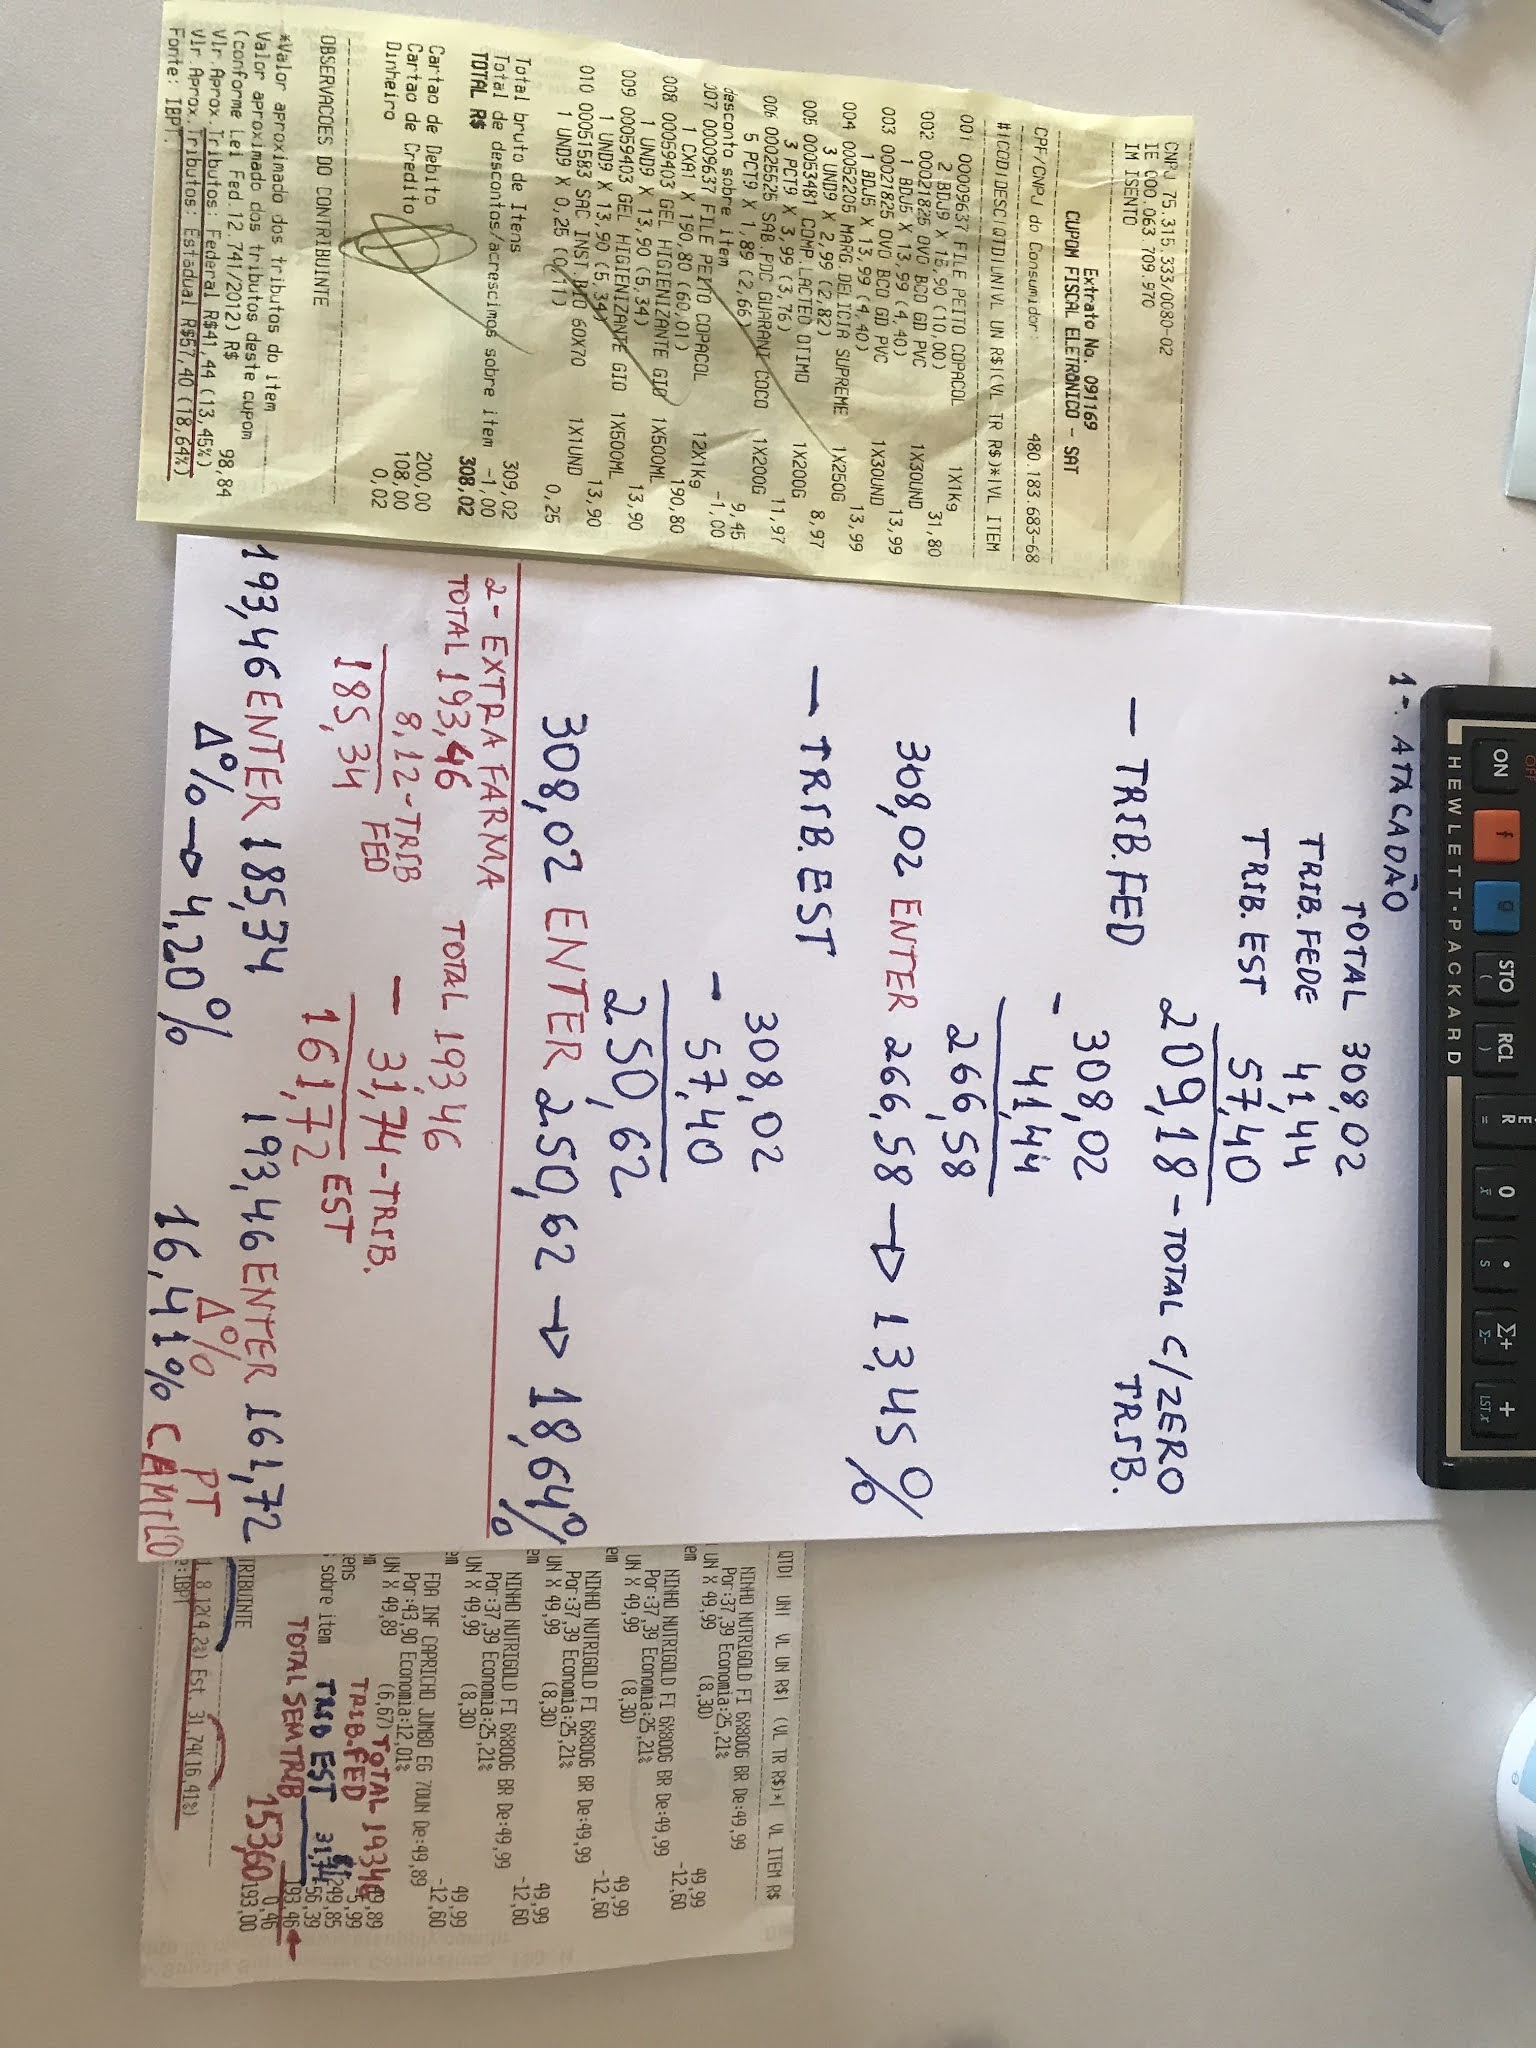 CNPJ 75.315.333/0080-02
IE 000.063.709.970
IM ISENTO
Extrato No. 091169
CUPOM FISCAL ELETRONICO - SAT
CPF/CNPJ do Consumidor: 480.183.683-68
#|COD|DESC|QTD|UN|VL UN R$|(VL TR R$)*|VL ITEM
001 00009637 FILE PEITO COPACOL 1X1Kg
2 BDJ9 X 15,90 (10,00) 31,80
002 00021825 OVO BCO GD PVC 1X30UND
1 BDJ5 X 13,99 (4,40) 13,99
003 00021825 OVO BCO GD PVC 1X30UND
1 BDJ5 X 13,99 (4,40) 13,99
004 00052205 MARG.DELICIA SUPREME 1X250G
3 UND9 X 2,99 (2,82) 8,97
005 00053481 COMP LACTEO OTIMO 1X200G
3 PCT9 X 3,99 (3,76) 11,97
006 00025525 SAB.PDC GUARANI COCO 1X200G
5 PCT9 X 1,89 (2,66) 9,45
desconto sobre item -1,00
007 00009637 FILE PEITO COPACOL 12X1Kg
1 CXA1 X 190,80 (60,01) 190,80
008 00059403 GEL HIGIENIZANTE GIO 1X500ML
1 UND9 X 13,90 (5,34) 13,90
009 00059403 GEL HIGIENIZANTE GIO 1X500ML
1 UND9 X 13,90 (5,34) 13,90
010 00051583 SAC INST.BIO 60X70 1X1UND
1 UND9 X 0,25 (0,11) 0,25
Total bruto de Itens 309,02
Total de descontos/acrescimos sobre item -1,00
TOTAL R$ 308,02
Cartao de Debito 200,00
Cartao de Credito 108,00
Dinheiro 0,02
OBSERVACOES DO CONTRIBUINTE
*Valor aproximado dos tributos do item
Valor aproximado dos tributos deste cupom
(conforme Lei Fed 12.741/2012) R$ 98,84
Vlr Aprox.Tributos: Federal R$41,44 (13,45%)
Vlr Aprox.Tributos: Estadual R$57,40 (18,64%)
Fonte: IBPT.
1-. ATACADÃO
TOTAL 308,02
TRIB.FEDE 41,44
TRIB.EST 57,40
209,18 - TOTAL C/ZERO
TRIB.
- TRIB.FED
308,02
- 41,44
266,58
308,02 ENTER 266,58 → 13,45%
- TRIB.EST
308,02
- 57,40
250,62
308,02 ENTER 250,62 → 18,64%
2- EXTRA FARMA
TOTAL 193,46
8,12-TRIB
185,34 FED
TOTAL 193,46
- 31,74-TRIB.
161,72 EST
193,46 ENTER 185,34
Δ% → 4,20%
193,46 ENTER 161,72
Δ%
16,41%
PT
CAMILO
OFF
ON
f
g
STO
(
RCL
)
E
R
=
0
x̄
•
S
Σ+
Σ-
+
LST x
HEWLETT·PACKARD
QTD| UN| VL UN R$| (VL TR R$)*| VL ITEM R$
NINHO NUTRIGOLD FI 6X800G BR De:49,99
Por:37,39 Economia:25,21%
UN X 49,99 (8,30) 49,99
em -12,60
NINHO NUTRIGOLD FI 6X800G BR De:49,99
Por:37,39 Economia:25,21%
UN X 49,99 (8,30) 49,99
em -12,60
NINHO NUTRIGOLD FI 6X800G BR De:49,99
Por:37,39 Economia:25,21%
UN X 49,99 (8,30) 49,99
em -12,60
NINHO NUTRIGOLD FI 6X800G BR De:49,99
Por:37,39 Economia:25,21%
UN X 49,99 (8,30) 49,99
em -12,60
FDA INF CAPRICHO JUMBO EG 70UN De:49,89
Por:43,90 Economia:12,01%
UN X 49,89 (6,67) 49,89
em 5,99
ens 249,85
sobre item 56,39
193,46
0,46
193,00
TOTAL 193,46
TRIB.FED
TRIB EST 31,74
TOTAL SEM TRIB 153,60
TRIBUINTE
8,12(4,2%) Est. 31,74(16,41%)
:IBPT